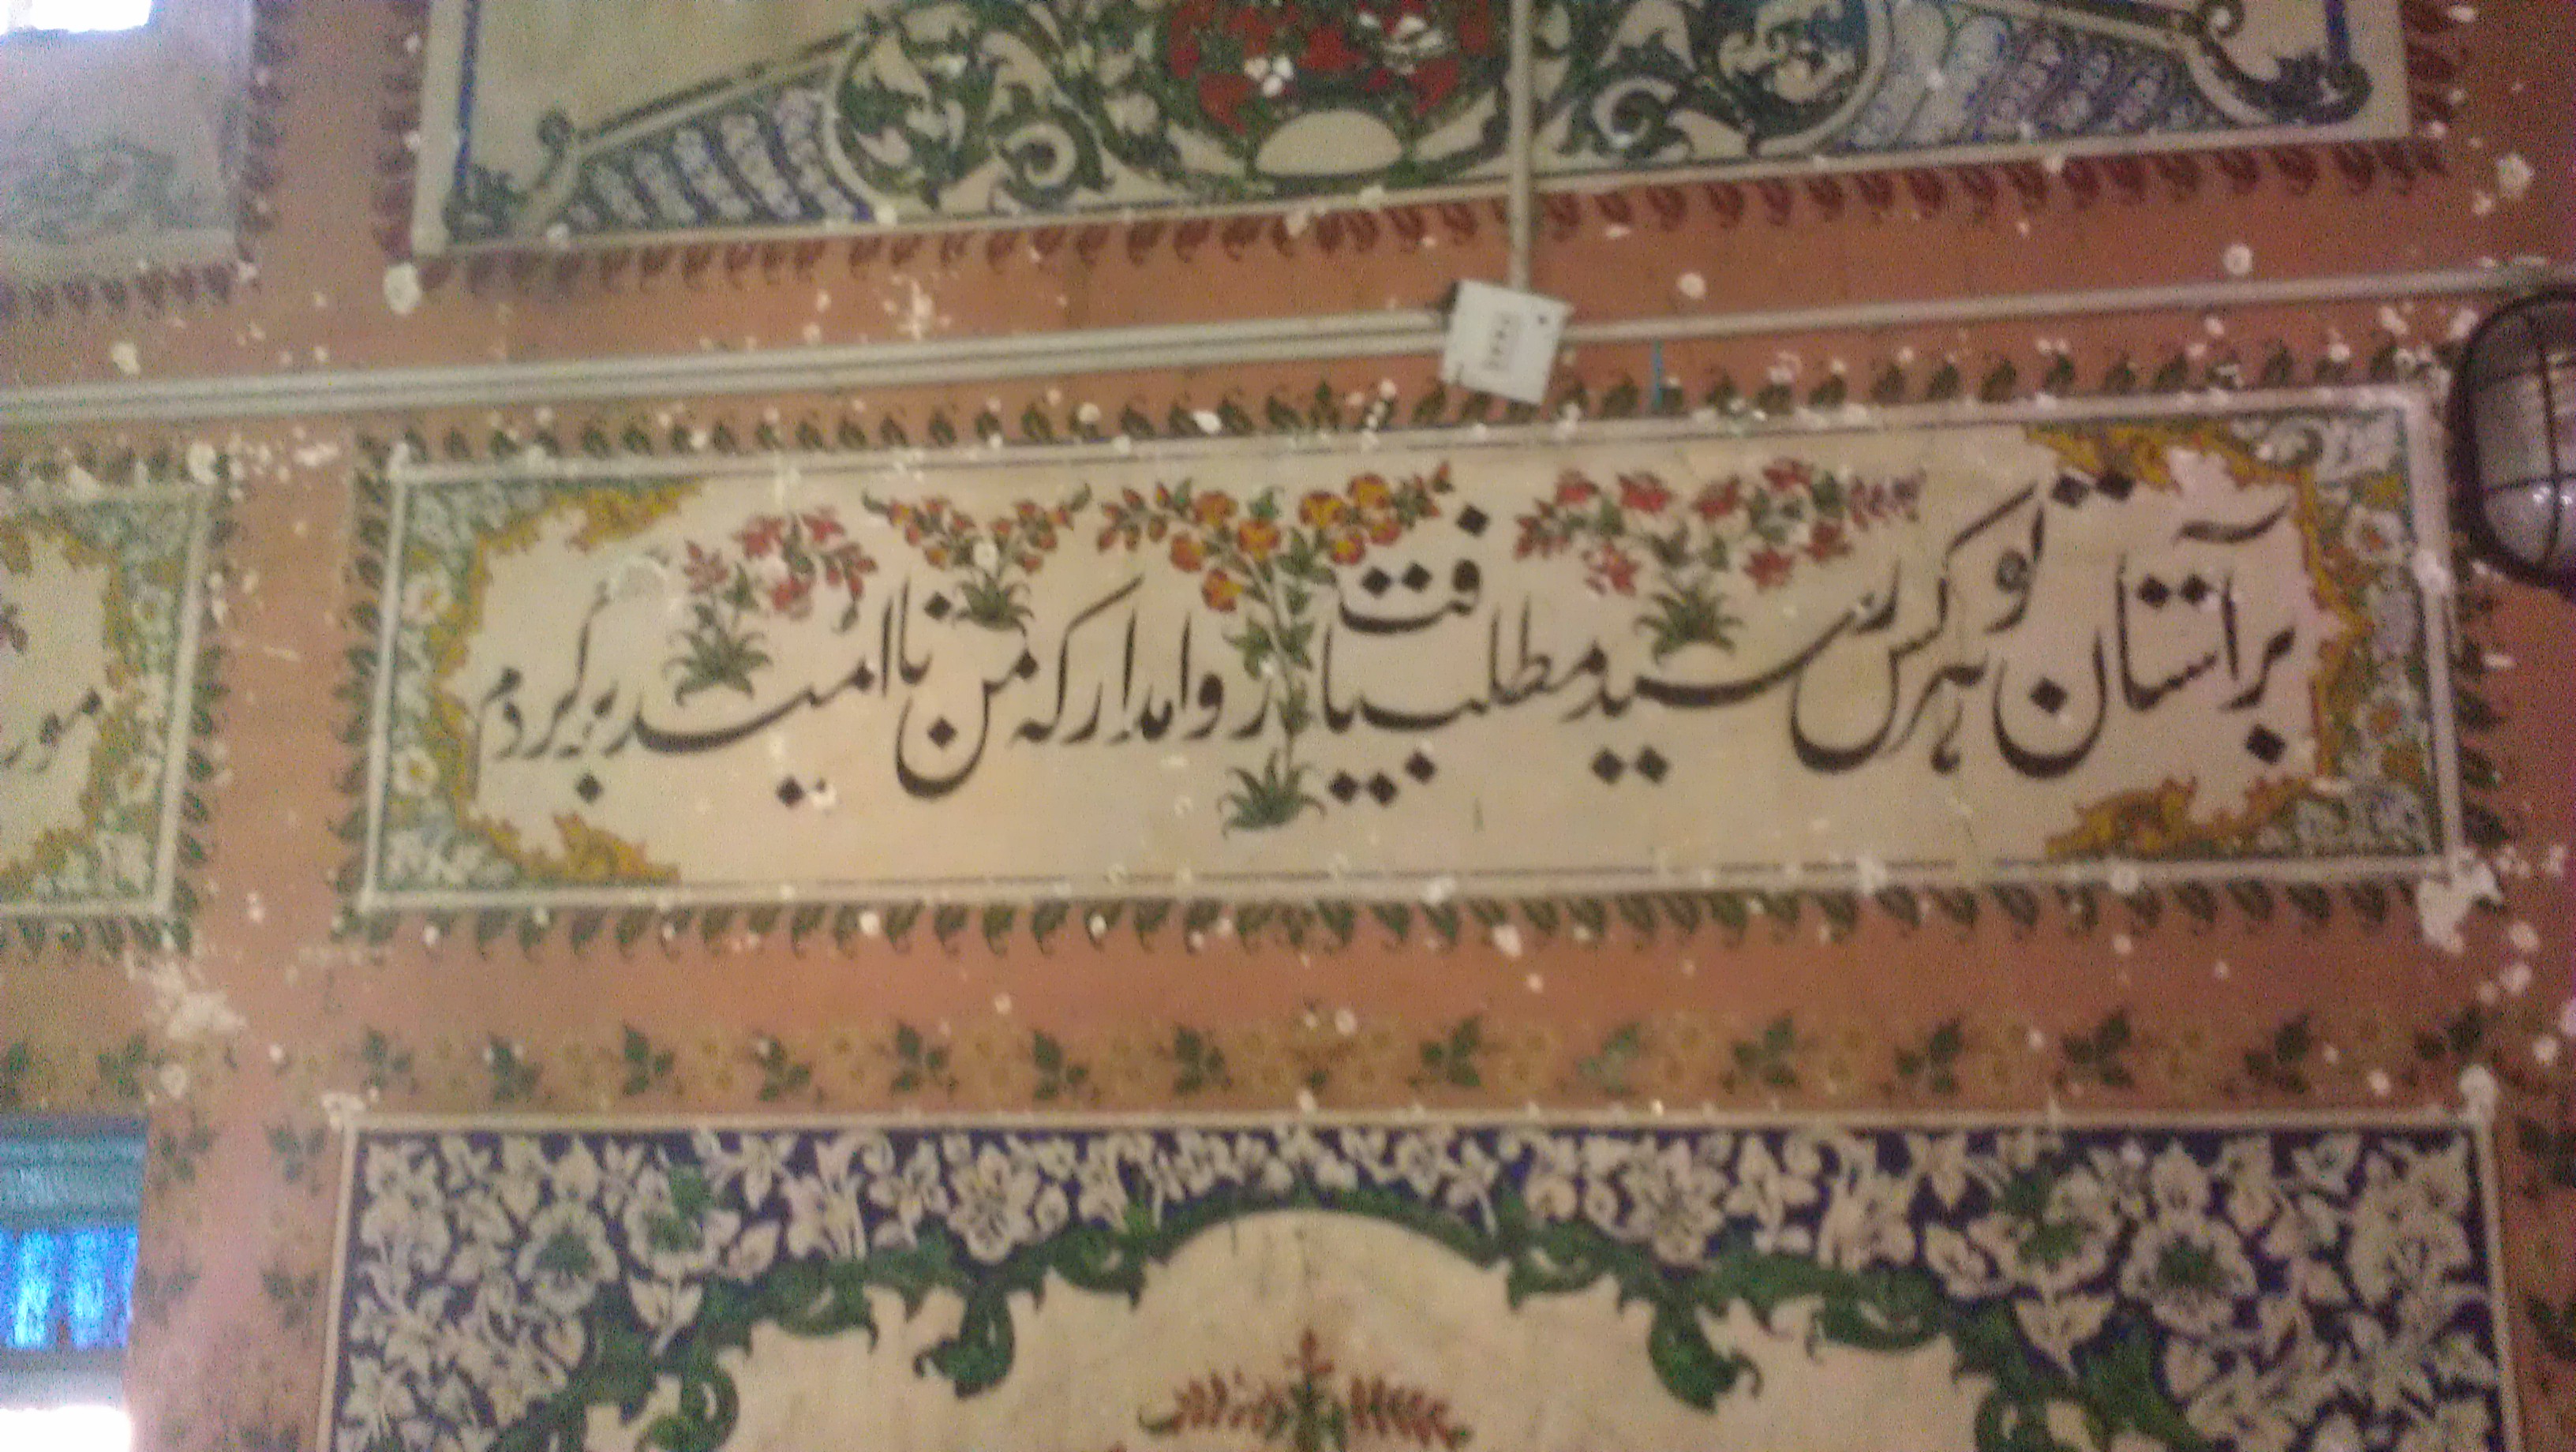 بر آستان تو هر کس رسید مطلب یافت روا مدار که من ناامید برگردم
مور